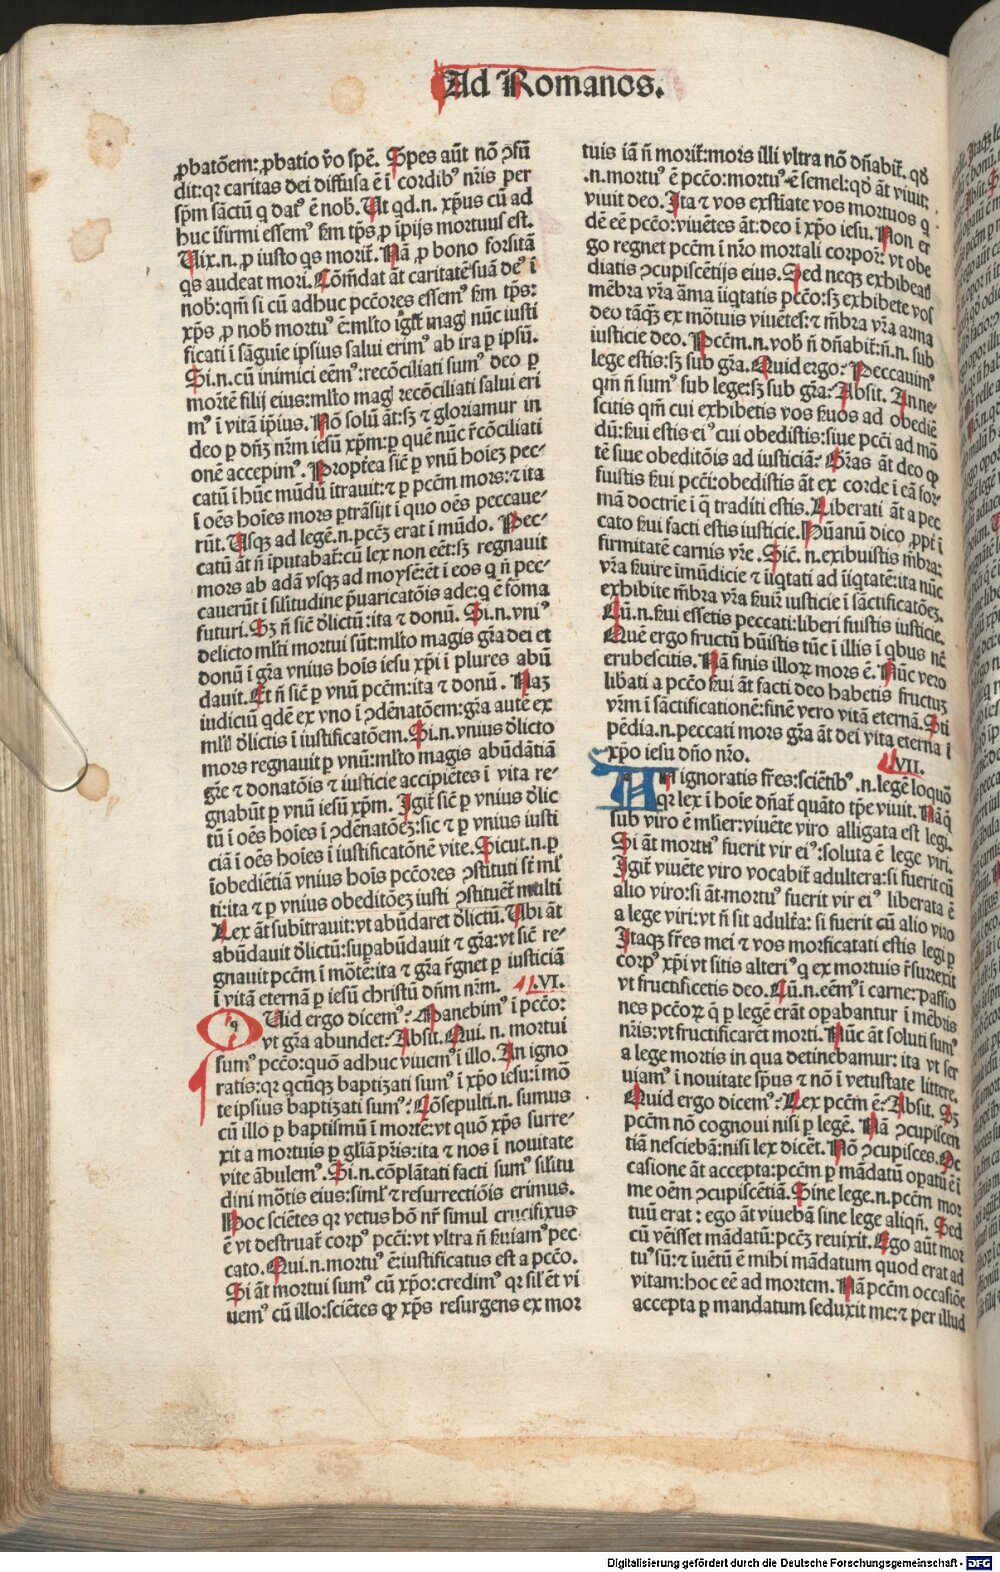 Ad Romanos.
ꝓbatõem: ꝓbatio v̾o spẽ. Spes aũt nõ ꝯfũ
dit: qꝛ caritas dei diffusa ẽ ĩ cordibꝰ nr̃is per
spm̃ sãctũ q datꝰ ẽ nob̃. Ut qd .n. xp̃us cũ ad
huc ĩfirmi essemꝰ ẜm tp̃s, ꝓ ĩpijs mortuus est.
Uix .n. ꝓ iusto qs morit᷑. Nã ꝓ bono forsitã
qs audeat mori. Cõm̃dat ãt caritatẽ suã deꝰ ĩ
nob̃: qm̃ si cũ adhuc pcc̃ores essemꝰ ẜm tp̃s:
xp̃s ꝓ nob̃ mortuꝰ ẽ: ml̃to igit᷑ magl nũc iusti
ficati ĩ sãguĩe ipsius salui erimꝰ ab ira ꝑ ipsũ.
Si .n. cũ inimici eẽmꝰ: recõciliati sumꝰ deo ꝑ
mortẽ filij eius: ml̃to magl recõciliati salui eri
mꝰ ĩ vitã ip̃ius. Nõ solũ ãt: sꝫ ⁊ gloriamur in
deo ꝑ dñꝫ nr̃m iesũ xp̃m: ꝑ quẽ nũc r̃cõciliati
onẽ accepimꝰ. Propt̾ea sic̃ ꝑ vnũ hoĩeꝫ pec-
catũ ĩ hũc mũdũ ĩtrauit: ⁊ ꝑ pcc̃m mors: ⁊ ita
ĩ oẽs hoĩes mors ꝑtrãsijt ĩ quo oẽs peccaue-
rũt. Usqꝫ ad legẽ .n. pcc̃ꝫ erat ĩ mũdo. Pec-
catũ ãt ñ ĩputabat᷑: cũ lex non eẽt: sꝫ regnauit
mors ab adã vsqꝫ ad moysẽ: ẽt ĩ eos q ñ pec-
cauerũt ĩ silitudine p̃uaricatõis ade: q ẽ foma
futuri. Sꝫ ñ sic̃ dl̃ictũ: ita ⁊ donũ. Si .n. vniꝰ
delicto ml̃ti mortui sũt: ml̃to magis gr̃a dei et
donũ ĩ gr̃a vnius hoĩs iesu xp̃i ĩ plures abũ
dauit. Et ñ sic̃ ꝑ vnũ pcc̃m: ita ⁊ donũ. Naꝫ
iudiciũ qdẽ ex vno ĩ ꝯdẽnatõem: gr̃a autẽ ex
ml̃tl dl̃ictis ĩ iustificatõem. Si .n. vnius dl̃icto
mors regnauit ꝑ vnũ: ml̃to magis abũdãtiã
gr̃e ⁊ donatõis ⁊ iusticie accipiẽtes ĩ vita re-
gnabũt ꝑ vnũ iesũ xp̃m. Igit᷑ sic̃ ꝑ vnius dl̃ic
tũ ĩ oẽs hoĩes ĩ ꝯdẽnatõeꝫ: sic ⁊ ꝑ vnius iusti
ciã ĩ oẽs hoĩes ĩ iustificatõnẽ vite. Sicut .n. ꝑ
ĩobediẽtiã vnius hoĩs pcc̃ores ꝯstituti st̃ ml̃
ti: ita ⁊ ꝑ vnius obeditõeꝫ iusti ꝯstituẽt᷑ multi
Lex ãt subĩtrauit: vt abũdaret dl̃ictũ. Ubi ãt
abũdauit dl̃ictũ: suꝑabũdauit ⁊ gr̃a: vt sic̃ re-
gnauit pcc̃m ĩ mõtẽ: ita ⁊ gr̃a r̃gnet ꝑ iusticiã
ĩ vitã eternã ꝑ iesũ christũ dñm nr̃m. VI.
QUid ergo dicemꝰ: Manebimꝰ ĩ pcc̃o:
vt gr̃a abundet: Absit. Qui .n. mortui
sumꝰ pcc̃o: quõ adhuc viuemꝰ ĩ illo. An igno
ratis: qꝛ qcũqꝫ baptiꝫati sumꝰ ĩ xp̃o iesu: ĩ mõ
te ipsius baptiꝫati sumꝰ: Cõsepulti .n. sumus
cũ illo ꝑ baptismũ ĩ mortẽ: vt quõ xp̃s surre-
xit a mortuis ꝑ gl̃iã pr̃is: ita ⁊ nos ĩ nouitate
vite ãbulemꝰ. Si .n. cõplãtati facti sumꝰ sil̃itu
dini mõtis eius: siml̃ ⁊ resurrectiõis erimus.
Hoc sciẽtes qꝛ vetus hõ nr̃ simul crucifixus
ẽ vt destruat᷑ corpꝰ pcc̃i: vt vltra ñ ẜuiamꝰ pec
cato. Qui .n. mortuꝰ ẽ: iustificatus est a pcc̃o.
Si ãt mortui sumꝰ cũ xp̃o: credimꝰ qꝛ sil̃ ẽt vi
uemꝰ cũ illo: sciẽtes ꝙ xp̃s resurgens ex mor
tuis iã ñ morit᷑: mors illi vltra nõ dñabit᷑. qd̾
.n. mortuꝰ ẽ pcc̃o: mortuꝰ ẽ semel: qd̾ ãt viuit:
viuit deo. Ita ⁊ vos exstiate vos mortuos q
dẽ eẽ pcc̃o: viuẽtes ãt: deo ĩ xp̃o iesu. Non er
go regnet pcc̃m ĩ nr̃o mortali corpoꝛ: vt obe
diatis ꝯcupiscẽtijs eius. Sed neqꝫ exhibeatl
mẽbra vr̃a ãma ĩiqtatis pcc̃o: sꝫ exhibete vos
deo tãqꝫ ex mõtuis viuẽtes: ⁊ m̃bra vr̃a arma
iusticie deo. Pcc̃m .n. vob̃ ñ dñabit᷑: ñ .n. sub
lege estis: sꝫ sub gr̃a. Quid ergo: Peccauimꝰ
qm̃ ñ sumꝰ sub lege: sꝫ sub gr̃a: Absit. An ne
scitis qm̃ cui exhibetis vos ẜuos ad obediẽ
dũ: ẜui estis eiꝰ cui obedistis: siue pcc̃i ad mõ
tẽ siue obeditõis ad iusticiã: Gr̃as ãt deo ꝙ
fuistis ẜui pcc̃i: obedistis ãt ex corde ĩ eã for-
mã doctrĩe ĩ q traditi estis. Liberati ãt a pec
cato ẜui facti estis iusticie. Hũanũ dico ꝓpt̾ ĩ
firmitatẽ carnis vr̃e. Sic̃ .n. exibuistis m̃bra:
vr̃a ẜuire ĩmũdicie ⁊ ĩiqtati ad ĩiqtatẽ: ita nũc
exhibite m̃bra vr̃a ẜuir̃ iusticie ĩ sãctificatõeꝫ.
Cũ .n. ẜui essetis peccati: liberi fuistis iusticie.
Quẽ ergo fructũ hũistis tũc ĩ illis ĩ qbus nẽ
erubescitis. Nã finis illoꝝ mors ẽ. Nũc vero
libati a pcc̃o ẜui ãt facti deo habetis fructuꝫ
vr̃m ĩ sãctificationẽ: finẽ vero vitã eternã. Sti
pẽdia .n. peccati mors gr̃a ãt dei vita eterna ĩ
xp̃o iesu dño nr̃o. VII.
AN ignoratis fr̃es: sciẽtibꝰ .n. legẽ loquoꝛ
qꝛ lex ĩ hoĩe dñat᷑ quãto tp̃e viuit. Nã q
sub viro ẽ ml̃ier: viuẽte viro alligata est legi.
Si ãt mortuꝰ fuerit vir eiꝰ: soluta ẽ lege viri.
Igit᷑ viuẽte viro vocabit᷑ adultera: si fuerit cũ
alio viro: si ãt mortuꝰ fuerit vir eiꝰ liberata ẽ
a lege viri: vt ñ sit adult̾a: si fuerit cũ alio viro
Itaqꝫ fr̃es mei ⁊ vos morficatati estis legi ꝑ
corpꝰ xp̃i vt sitis alteriꝰ q ex mortuis r̃surrexit
vt fructificetis deo. Cũ .n. eẽmꝰ ĩ carne: passio
nes pcc̃oꝝ q ꝑ legẽ erãt opabantur ĩ mẽbris
nr̃is: vt fructificarẽt morti. Nũc ãt soluti sumꝰ
a lege mortis in qua detinebamur: ita vt ser
uiamꝰ ĩ nouitate sp̃us ⁊ nõ ĩ vetustate littere.
Quid ergo dicemꝰ: Lex pcc̃m ẽ: Absit. Sꝫ
pcc̃m nõ cognoui nisi ꝑ legẽ. Nã ꝯcupiscen
tiã nesciebã: nisi lex dicẽt. Nõ ꝯcupisces. Oc
casione ãt accepta: pcc̃m ꝑ mãdatũ opatũ ẽ ĩ
me oẽm ꝯcupiscẽtiã. Sine lege .n. pcc̃m mor
tuũ erat: ego ãt viuebã sine lege aliqñ. Sed
cũ vẽisset mãdatũ: pcc̃ꝫ reuixit. Ego aũt mor
tuꝰ sũ: ⁊ ĩuẽtũ ẽ mihi mãdatum quod erat ad
vitam: hoc eẽ ad mortem. Nã pcc̃m occasiõe
accepta ꝑ mandatum seduxit me: ⁊ per illud
Digitalisierung gefördert durch die Deutsche Forschungsgemeinschaft - DFG